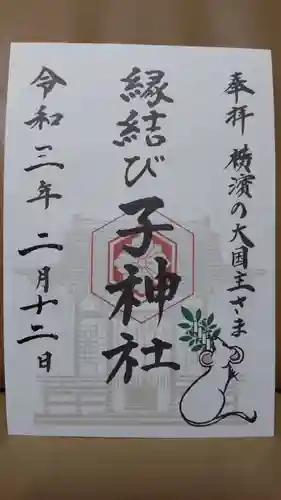 奉拝 横濱の大国主さま
縁結び子神社
令和三年二月十二日